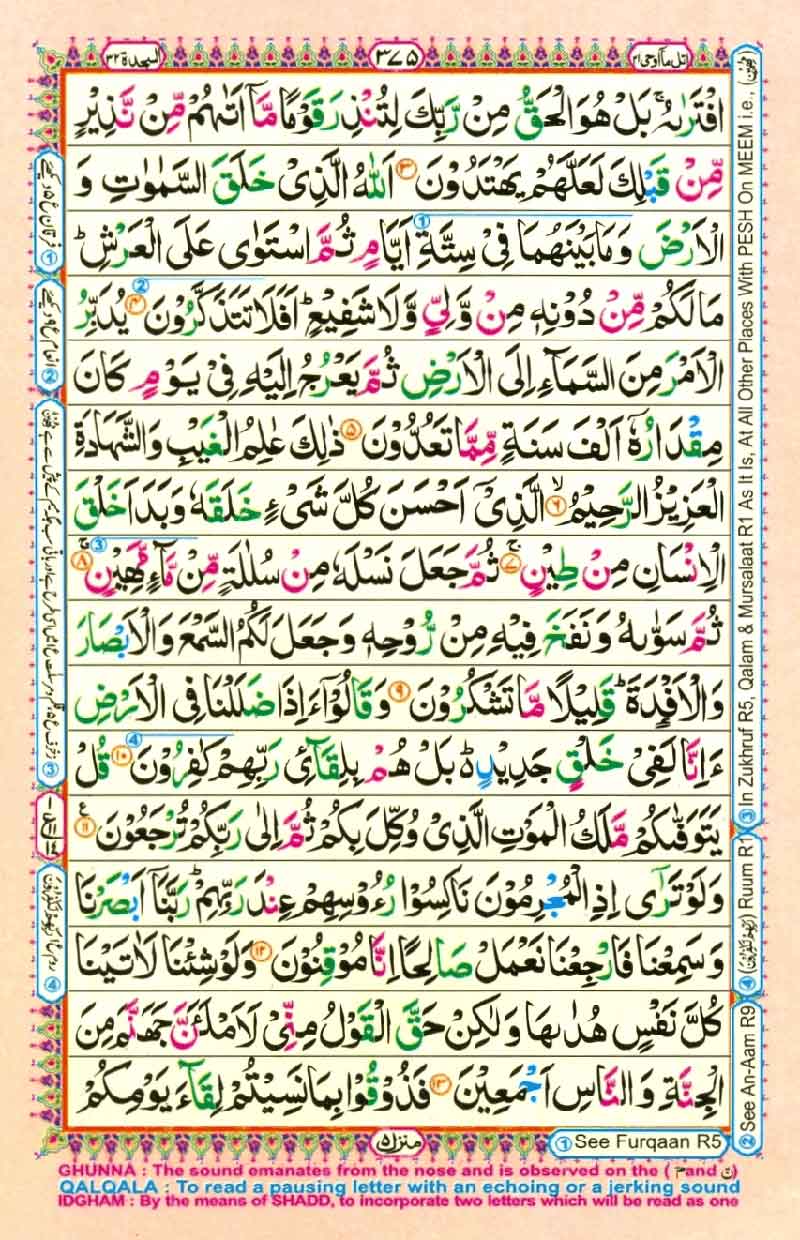 السجدة ٣٢
٣٧٥
اتل ما اوحی ٢١
افْتَرٰىهُ ۚ بَلْ هُوَ الْحَقُّ مِنْ رَّبِّكَ لِتُنْذِرَ قَوْمًا مَّاۤ اَتٰىهُمْ مِّنْ نَّذِیْرٍ
مِّنْ قَبْلِكَ لَعَلَّهُمْ یَهْتَدُوْنَ ﴿۳﴾ اَللّٰهُ الَّذِیْ خَلَقَ السَّمٰوٰتِ وَ
الْاَرْضَ وَمَا بَیْنَهُمَا فِیْ سِتَّةِ اَیَّامٍ ثُمَّ اسْتَوٰی عَلَی الْعَرْشِ ؕ
مَا لَكُمْ مِّنْ دُوْنِهٖ مِنْ وَّلِیٍّ وَّلَا شَفِیْعٍ ؕ اَفَلَا تَتَذَكَّرُوْنَ ﴿۴﴾ یُدَبِّرُ
الْاَمْرَ مِنَ السَّمَآءِ اِلَی الْاَرْضِ ثُمَّ یَعْرُجُ اِلَیْهِ فِیْ یَوْمٍ كَانَ
مِقْدَارُهٗۤ اَلْفَ سَنَةٍ مِّمَّا تَعُدُّوْنَ ﴿۵﴾ ذٰلِكَ عٰلِمُ الْغَیْبِ وَالشَّهَادَةِ
الْعَزِیْزُ الرَّحِیْمُ ۙ﴿۶﴾ الَّذِیْۤ اَحْسَنَ كُلَّ شَیْءٍ خَلَقَهٗ وَبَدَاَ خَلْقَ
الْاِنْسَانِ مِنْ طِیْنٍ ۚ﴿۷﴾ ثُمَّ جَعَلَ نَسْلَهٗ مِنْ سُلٰلَةٍ مِّنْ مَّآءٍ مَّهِیْنٍ ۚ﴿۸﴾
ثُمَّ سَوّٰىهُ وَنَفَخَ فِیْهِ مِنْ رُّوْحِهٖ وَجَعَلَ لَكُمُ السَّمْعَ وَالْاَبْصَارَ
وَالْاَفْـِٕدَةَ ؕ قَلِیْلًا مَّا تَشْكُرُوْنَ ﴿۹﴾ وَقَالُوْۤا ءَاِذَا ضَلَلْنَا فِی الْاَرْضِ
ءَاِنَّا لَفِیْ خَلْقٍ جَدِیْدٍ ؕ۬ بَلْ هُمْ بِلِقَآئِ رَبِّهِمْ كٰفِرُوْنَ ﴿۱۰﴾ قُلْ
یَتَوَفّٰىكُمْ مَّلَكُ الْمَوْتِ الَّذِیْ وُكِّلَ بِكُمْ ثُمَّ اِلٰی رَبِّكُمْ تُرْجَعُوْنَ ﴿۱۱﴾ع
وَلَوْ تَرٰۤی اِذِ الْمُجْرِمُوْنَ نَاكِسُوْا رُءُوْسِهِمْ عِنْدَ رَبِّهِمْ ؕ رَبَّنَاۤ اَبْصَرْنَا
وَسَمِعْنَا فَارْجِعْنَا نَعْمَلْ صَالِحًا اِنَّا مُوْقِنُوْنَ ﴿۱۲﴾ وَلَوْ شِئْنَا لَاٰتَیْنَا
كُلَّ نَفْسٍ هُدٰىهَا وَلٰكِنْ حَقَّ الْقَوْلُ مِنِّیْ لَاَمْلَـَٔنَّ جَهَنَّمَ مِنَ
الْجِنَّةِ وَالنَّاسِ اَجْمَعِیْنَ ﴿۱۳﴾ فَذُوْقُوْا بِمَا نَسِیْتُمْ لِقَآءَ یَوْمِكُمْ
منزل ۵
① See Furqaan R5
② See An-Aam R9
③ In Zukhruf R5, Qalam & Mursalaat R1 As It Is, At All Other Places With PESH On MEEM i.e.,
④ Ruum R1
GHUNNA : The sound emanates from the nose and is observed on the ( م and ن)
QALQALA : To read a pausing letter with an echoing or a jerking sound
IDGHAM : By the means of SHADD, to incorporate two letters which will be read as one